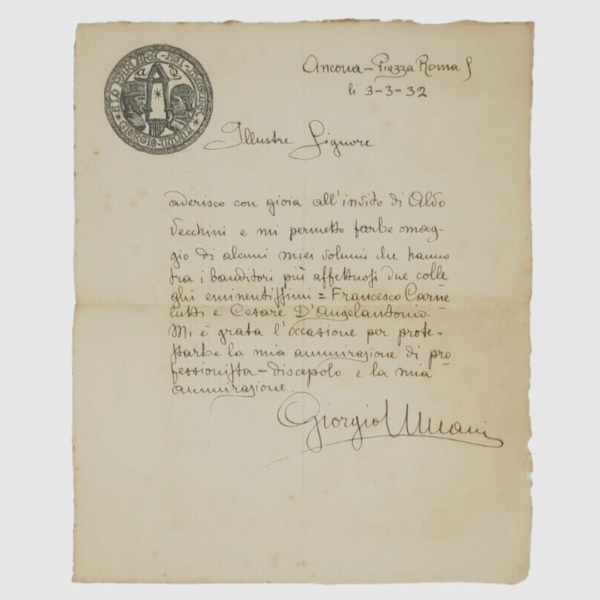 GIORGIO UMANI
Ancona - Piazza Roma 5
li 3-3-32
Illustre Signore
aderisco con gioia all'invito di Aldo
Vecchini e mi permetto farle omag-
gio di alcuni miei volumi che hanno
tra i banditori più affettuosi due colle
ghi eminentissimi = Francesco Carne
lutti e Cesare D'Angelantonio.
Mi è grata l'occasione per prote-
starle la mia ammirazione di pro
fessionista - discepolo e la mia
ammirazione.
Giorgio Umani